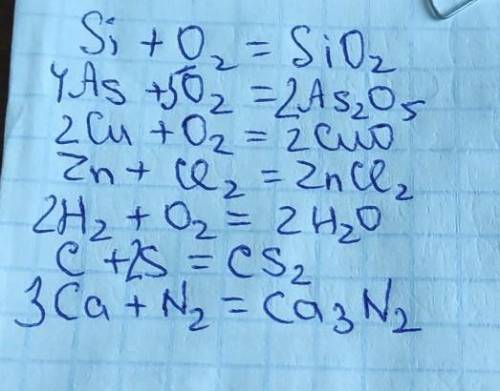 Si + O₂ = SiO₂
4As + 5O₂ = 2As₂O₅
2Cu + O₂ = 2CuO
Zn + Cl₂ = ZnCl₂
2H₂ + O₂ = 2H₂O
C + 2S = CS₂
3Ca + N₂ = Ca₃N₂